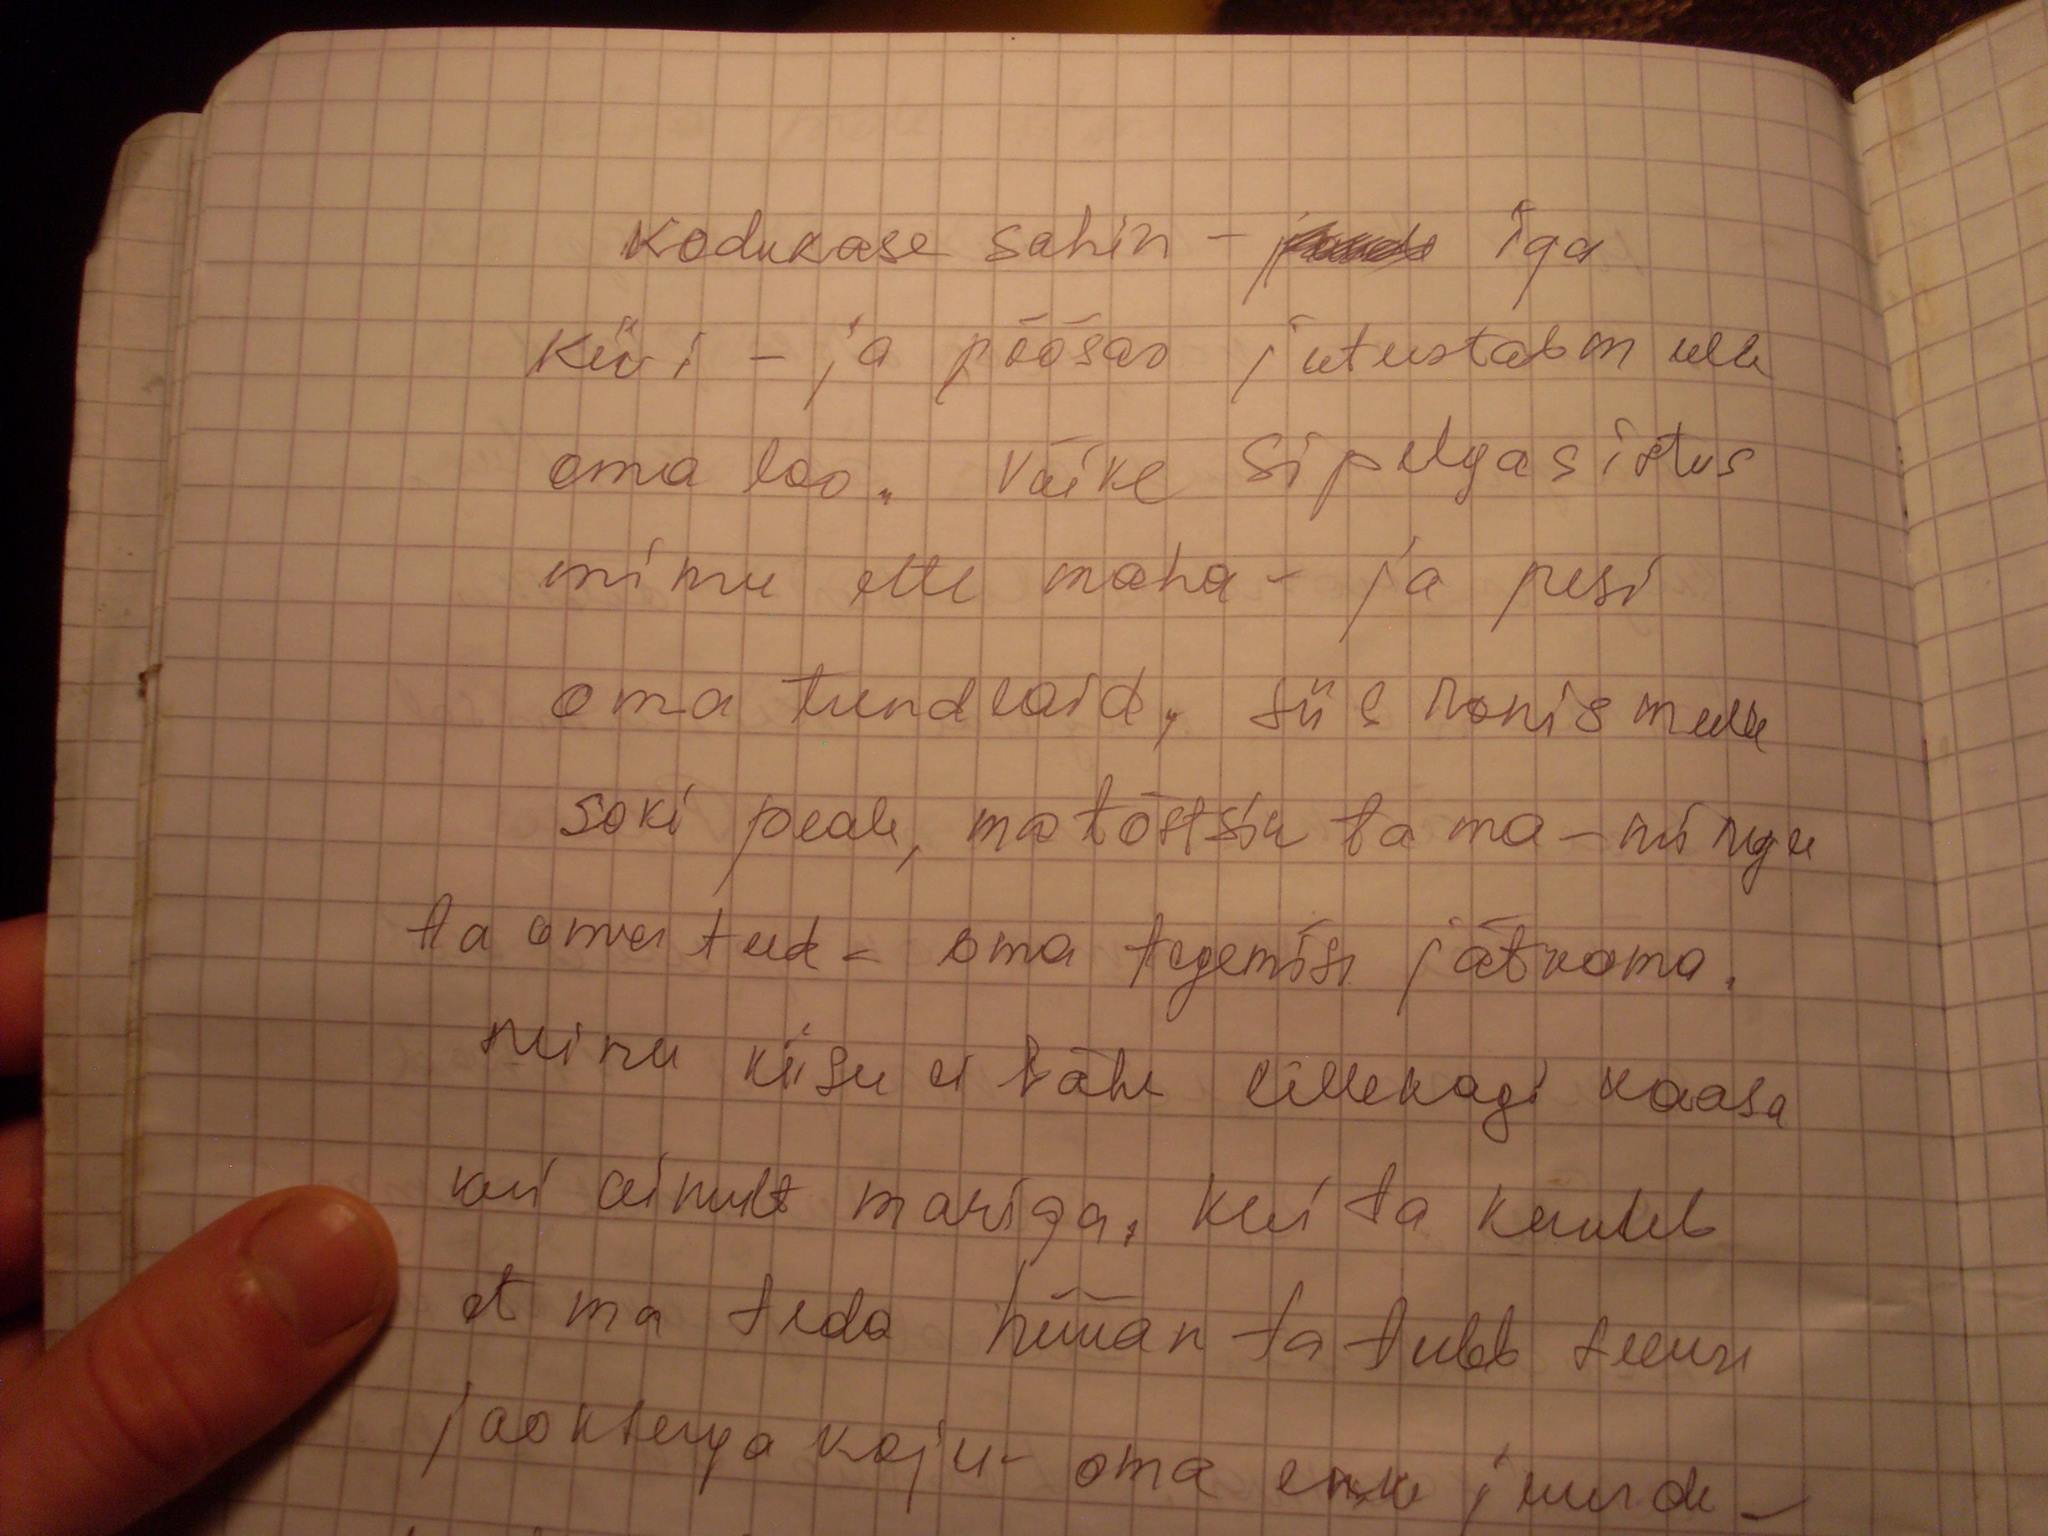 Kodukase sahin - iga
kivi - ja põõsas jutustab mulle
oma loo. Väike sipelgas istus
minu ette maha - ja pesi
oma tundlaid, siis ronis mulle
soki peale, ma tõstsin ta maha - mingu
ta oma teed - oma tegemisi jätkama.
Minu kiisu ei lähe kellekagi kaasa
kui ainult mariga, kui ta kuuleb
et ma teda hüüan ta tuleb suure
jooksuga koju - oma emme juurde -